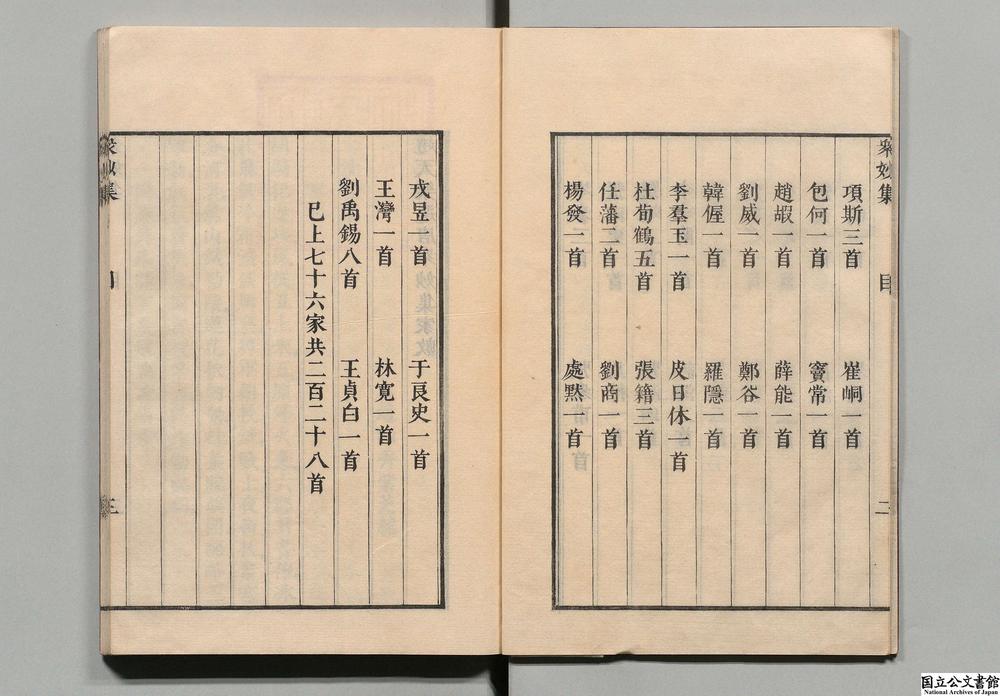 項斯三首 崔峒一首
包何一首 竇常一首
趙嘏一首 薛能一首
劉威一首 鄭谷一首
韓偓一首 羅隱一首
李羣玉一首 皮日休一首
杜荀鶴五首 張籍三首
任藩二首 劉商一首
楊發一首 處黙一首
衆妙集 目 二
戎昱一首 于良史一首
王灣一首 林寛一首
劉禹錫八首 王貞白一首
已上七十六家共二百二十八首
衆妙集 目 三
国立公文書館
National Archives of Japan